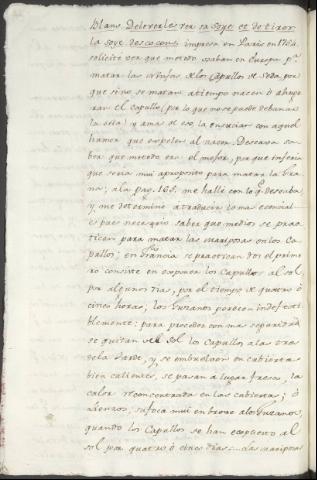 blans De leverles vera sa Soye et de tirer
la soye des cocons impresa en Paris en 176
solicité ver que metodo usaban en Europa pª
matar las crisas de los Capullos de Seda, por
que si no se maran atiempo nacen ó ahuge
ran el capullo (por lo que no se puede debanar
la seda) y amas de eso la ensucian con aquel
humor que expelen al nacer. Deseaba sa
ber que metodo era el mejor, por que inferia
que seria mui aproposito para matar la Gra
na; ala pag. 165. me hallé con lo q. deseaba,
y me determiné atraducir lo mas esencial
pues necesario saber que medios se prac
ticen para matar las mariposas en los Ca
pullos; en Francia se practican dos el prime
ro consiste en exponer los Capullos al sol
por algunos dias, por el tiempo de quatro ó
cinco horas, los Gusanos perecen indefecti
blemente: para proceder con mas seguridad
se quitan del Sol los Capullos a las tres
de la tarde, y se embuelven en cubiertas
bien calientes, se pasan a lugar fresco, la
calor reconcentrada en las cubiertas, ó
lienzos, sufoca mui en breve a los Gusanos,
quando los Capullos se han expuesto al
sol por quatro ó cinco dias... Las mariposas